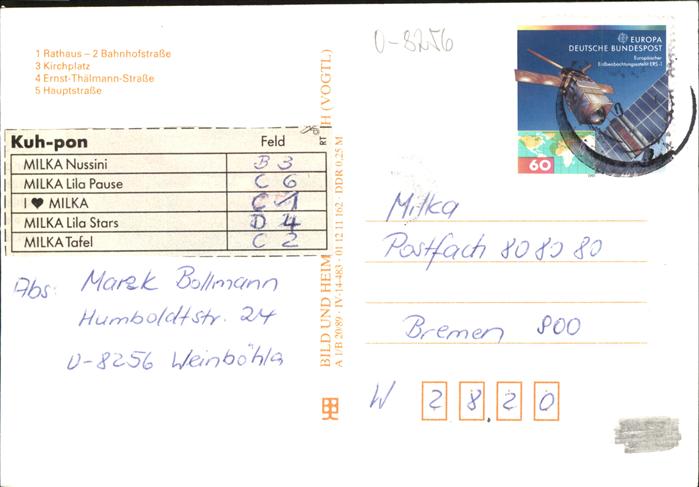 O-8256
EUROPA
DEUTSCHE BUNDESPOST
Europäischer
Erdbeobachtungssatellit ERS-1
60
1 Rathaus – 2 Bahnhofstraße
3 Kirchplatz
4 Ernst-Thälmann-Straße
5 Hauptstraße
Kuh-pon Feld
MILKA Nussini B 3
MILKA Lila Pause C 6
I ♥ MILKA C 1
MILKA Lila Stars D 4
MILKA Tafel C 2
Abs: Marek Bollmann
Humboldtstr. 24
O-8256 Weinböhla
BILD UND HEIM
H (VOGTL)
A 1/B 20/89 · IV-14-483 · 01 12 11 162 · DDR 0,25 M
RT
Milka
Postfach 80 80 80
Bremen 800
W 2 8.2 0